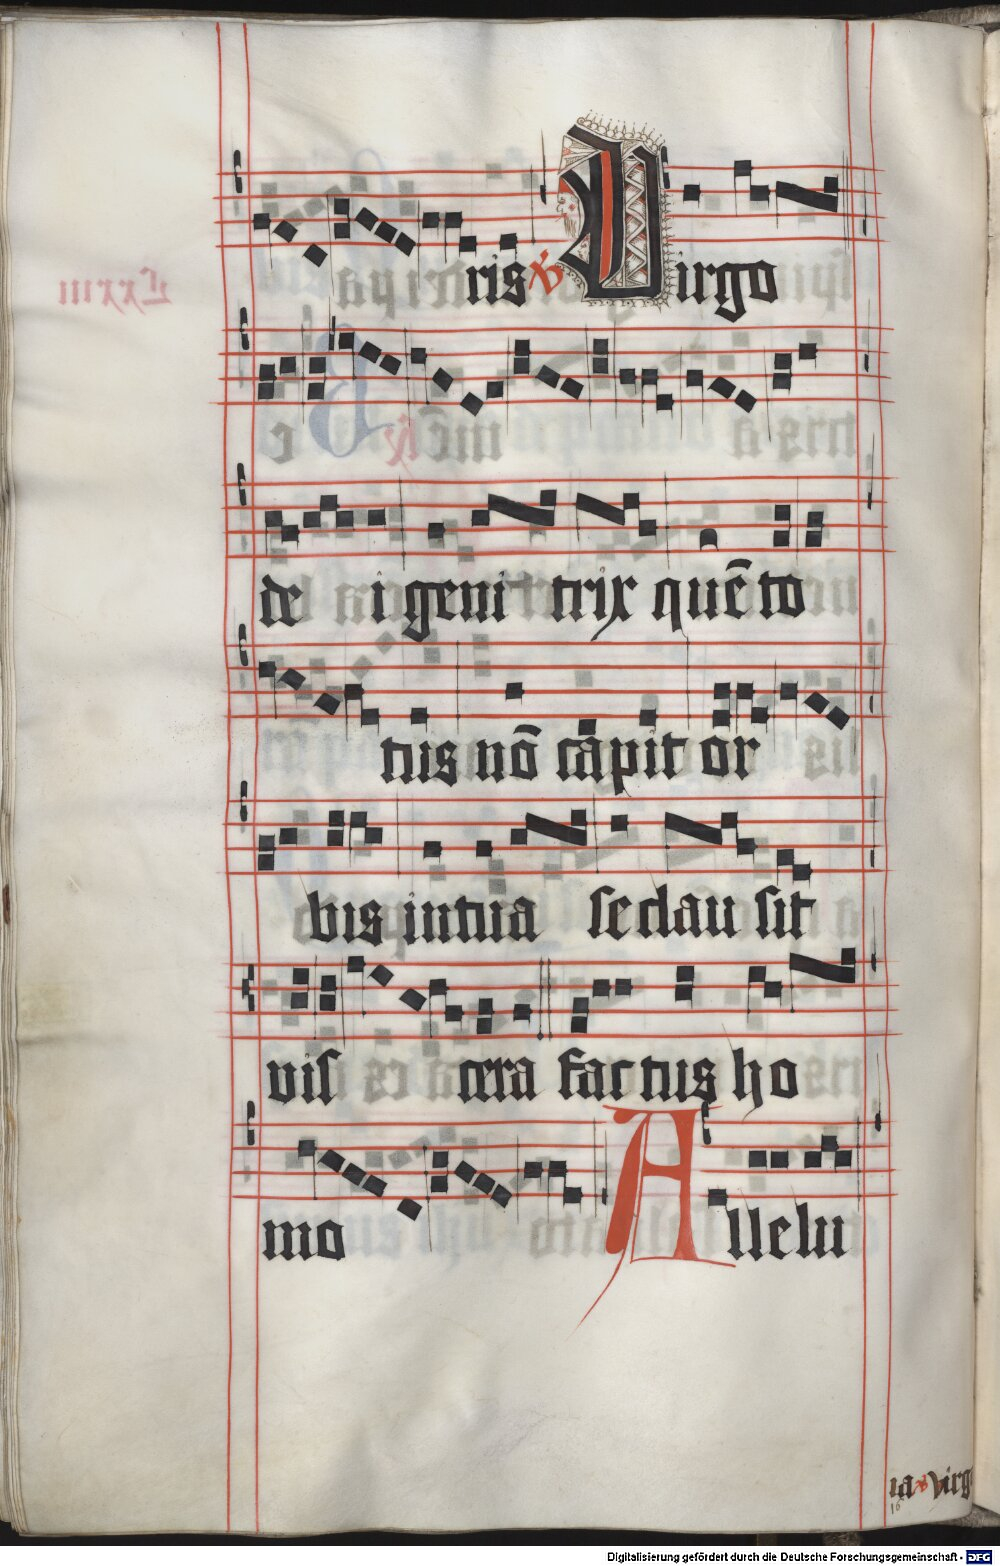 ris ℣ Virgo
de i geni trix quē to
tus nō capit or
bis in tua se clau sit
vis cera factus ho
mo Allelu
ia ℣ virgo
16
Digitalisierung gefördert durch die Deutsche Forschungsgemeinschaft - DFG